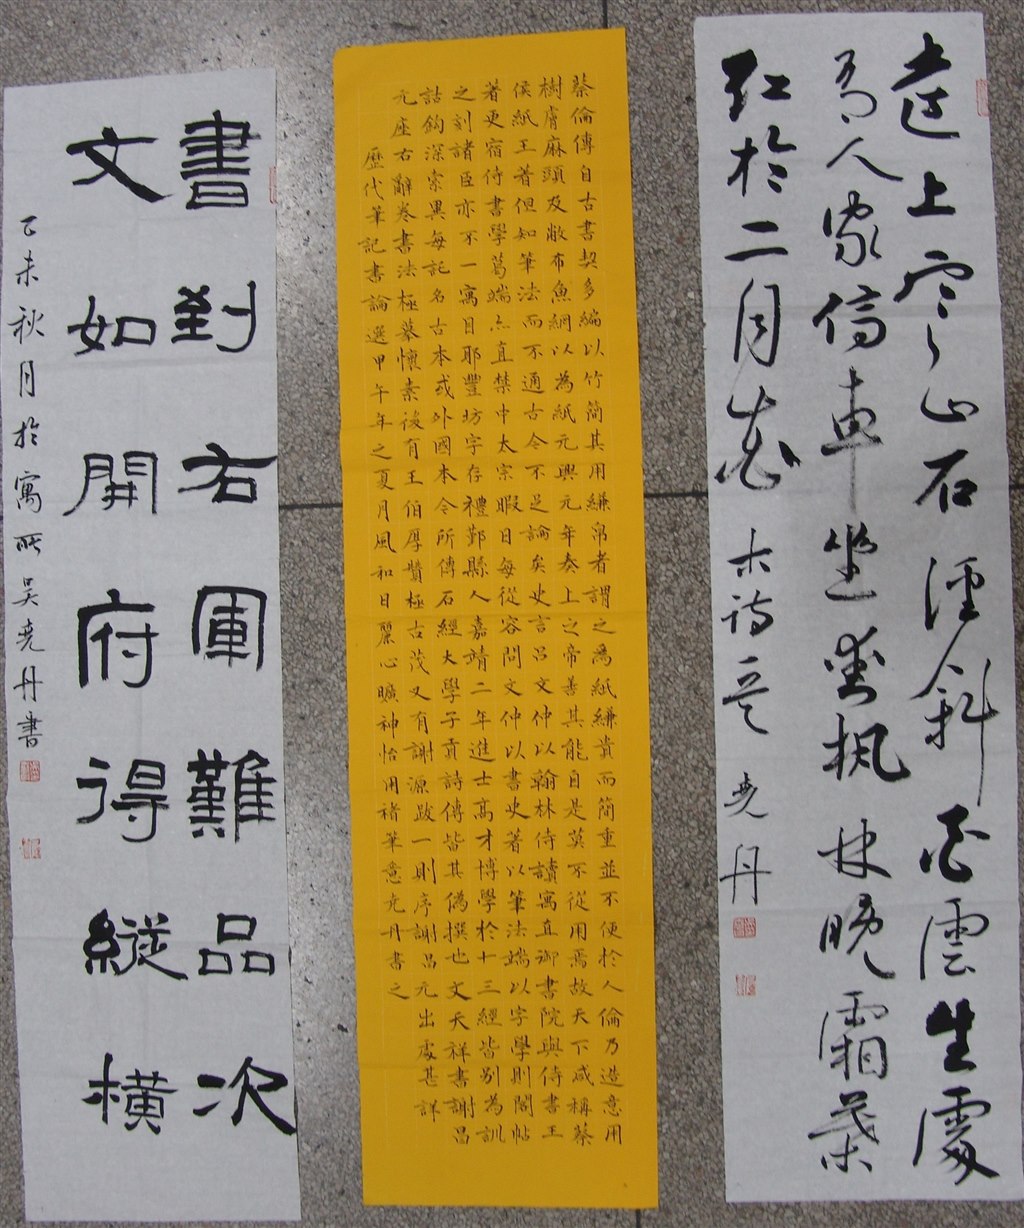 遠上寒山石徑斜白雲生處
有人家停車坐愛楓林晚霜葉
紅於二月花 堯丹
蔡倫傳自古書契多編以竹簡其用縑帛者謂之為紙縑貴而簡重並不便於人倫乃造意用
樹膚麻頭及敝布魚網以為紙元興元年奏上之帝善其能自是莫不從用焉故天下咸稱蔡
侯紙王著但知筆法而不通古今不足論矣史言呂文仲以翰林侍讀寓直御書院與侍書王
著更宿侍書學葛端亦直禁中太宗暇日每從容問文仲以書史著以筆法端以字學則閣帖
之刻諸臣亦不一寓目耶豐坊字存禮鄞縣人嘉靖二年進士高才博學於十三經皆別為訓
詁鉤深索異每記名古本或外國本今所傳石經大學子貢詩傳皆其偽撰也文天祥書謝昌
元座右辭卷書法極摹懷素後有王伯厚贊極古茂又有謝源跋一則序謝昌元出處甚詳
歷代筆記書論選甲午年之夏月風和日麗心曠神怡用褚筆意尧丹書之
書到右軍難品次
文如開府得縱橫
乙未秋月於寓所吴尧丹書